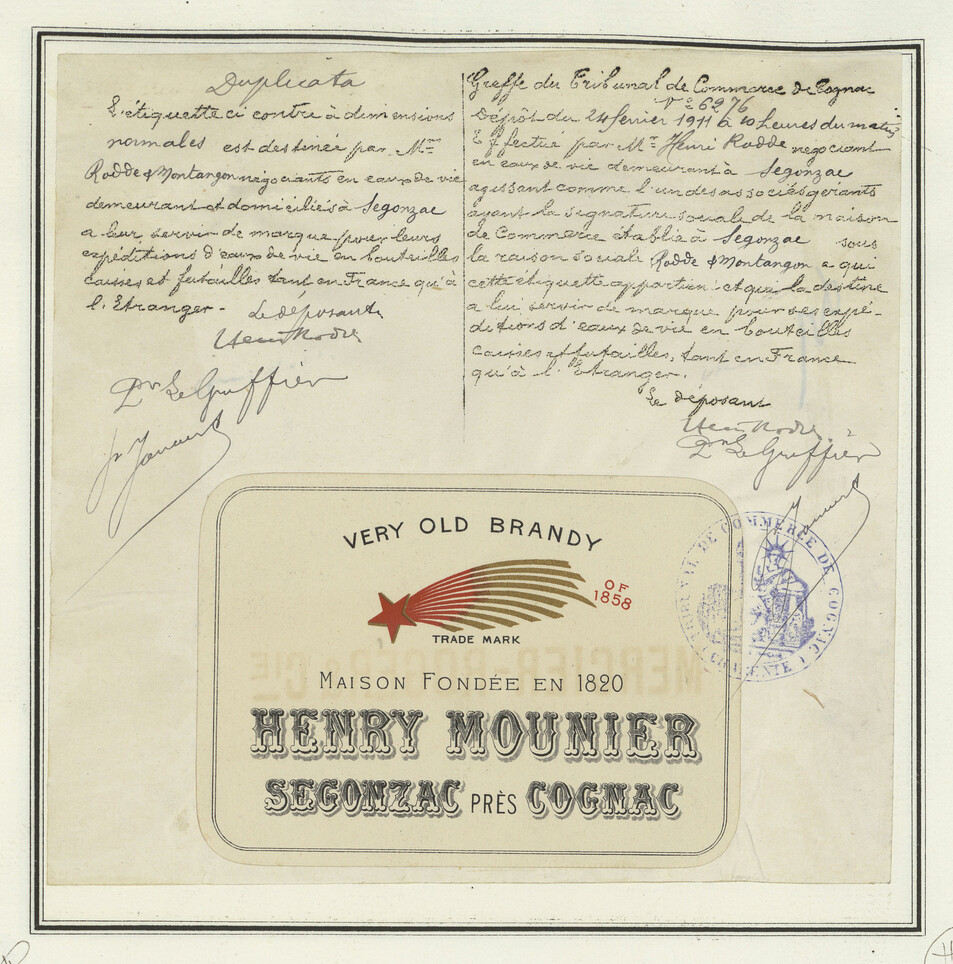 Duplicata
L'étiquette ci contre à dimensions
normales est destinée par Mrs
Rodde & Montangon négociants en eaux de vie
demeurant et domiciliés à Segonzac
a leur servir de marque pour leurs
expéditions d'eaux de vie en bouteilles
caisses et futailles tant en France qu'à
l'Etranger.
Le déposant
Henri Rodde
Dr Le Greffier
Greffe du Tribunal de Commerce de Cognac
No 6276
Dépôt du 24 février 1911 à 10 heures du matin
Effectué par Mr Henri Rodde negociant
en eaux de vie demeurant à Segonzac
agissant comme l'un des associés gérants
ayant la signature sociale de la maison
de Commerce établie à Segonzac sous
la raison sociale Rodde & Montangon a qui
cette étiquette appartient et qui la destine
a lui servir de marque pour ses expé-
ditions d'eaux de vie en bouteilles
caisses et futailles, tant en France
qu'à l'Etranger.
Le déposant
Henri Rodde
Dr Le Greffier
VERY OLD BRANDY
OF
1858
TRADE MARK
MAISON FONDÉE EN 1820
HENRY MOUNIER
SEGONZAC PRÈS COGNAC
TRIBUNAL DE COMMERCE DE COGNAC
(CHARENTE)
MERCIER-ROGER & CIE